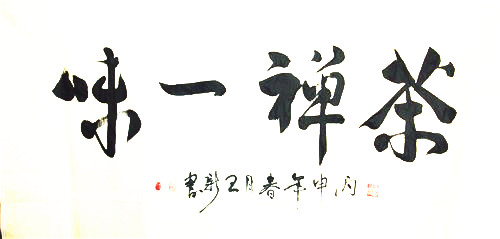 茶禅一味
丙申年春月王新书